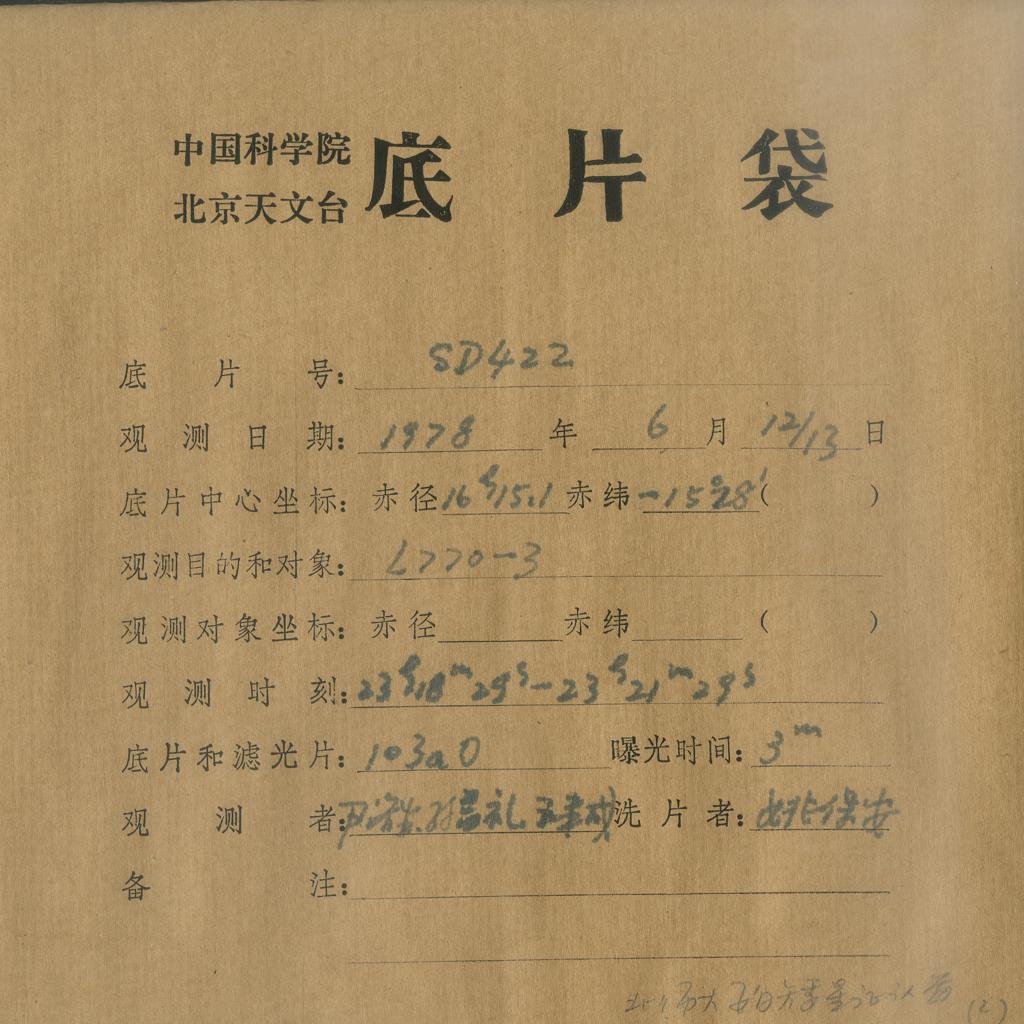 中国科学院
北京天文台
底片袋
底片号: SD422
观测日期: 1978 年 6 月 12/13 日
底片中心坐标: 赤径 16h15.1 赤纬 -15°28′ ( )
观测目的和对象: L770-3
观测对象坐标: 赤径 赤纬 ( )
观测时刻: 23h18m29s-23h21m29s
底片和滤光片: 103aO 曝光时间: 3m
观测者: 洗片者: 姚保安
备注:
(2)